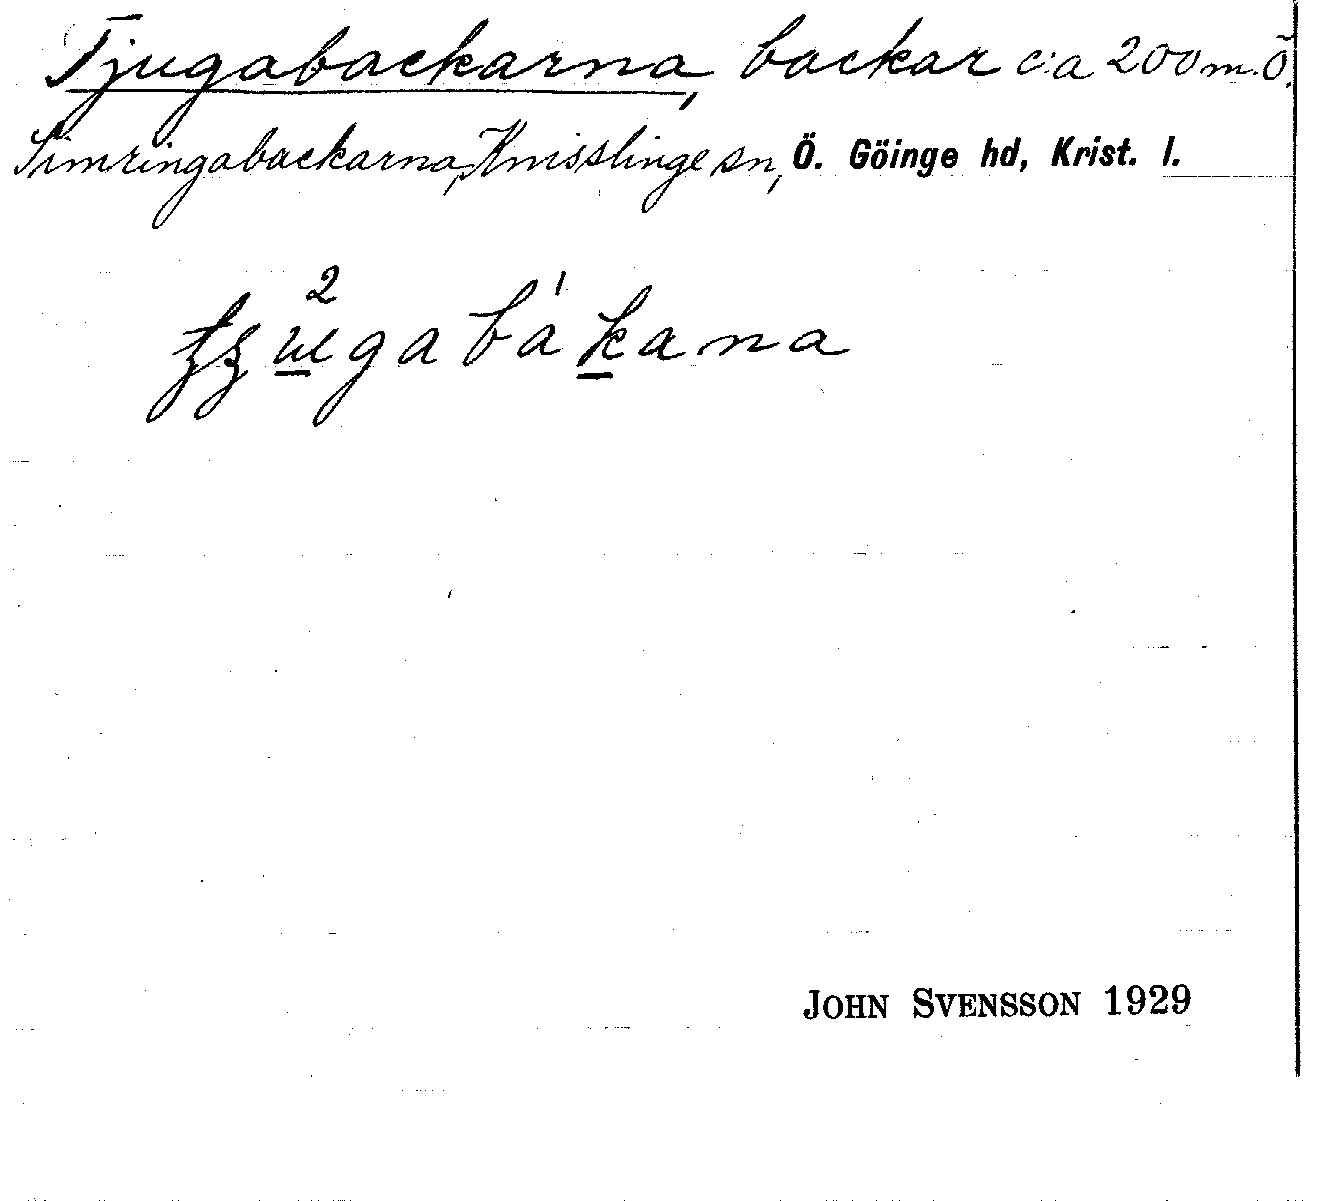 Tjugabackarna, backar c:a 200 m. Ö.
Simringabackarna, Knisslinge sn, Ö. Göinge hd, Krist. l.
JOHN SVENSSON 1929